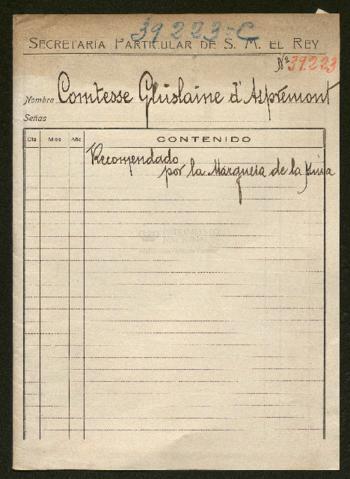 39223-C
SECRETARÍA PARTICULAR DE S. M. EL REY
Nº 39.223
Nombre Comtesse Ghislaine d'Aspremont
Señas
Día Mes Año CONTENIDO
Recomendado
por la Marquesa de la